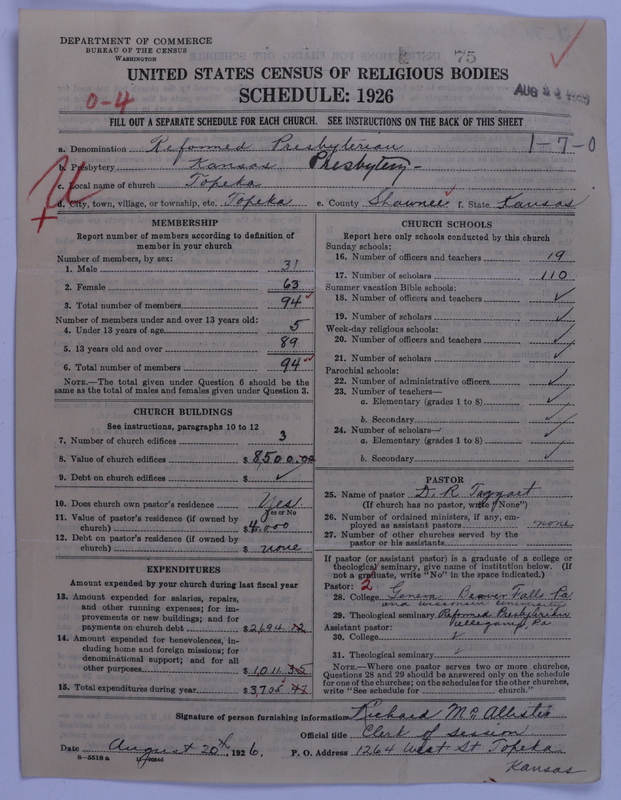 DEPARTMENT OF COMMERCE
BUREAU OF THE CENSUS
WASHINGTON
75
UNITED STATES CENSUS OF RELIGIOUS BODIES
SCHEDULE: 1926
AUG
0-4
FILL OUT A SEPARATE SCHEDULE FOR EACH CHURCH. SEE INSTRUCTIONS ON THE BACK OF THIS SHEET
a. Denomination Reformed Presbyterian 1-7-0
b. Presbytery Kansas Presbytery
c. Local name of church Topeka
d. City, town, village, or township, etc. Topeka e. County Shawnee f. State Kansas
MEMBERSHIP
Report number of members according to definition of
member in your church
Number of members, by sex:
1. Male 31
2. Female 63
3. Total number of members 94
Number of members under and over 13 years old:
4. Under 13 years of age 5
5. 13 years old and over 89
6. Total number of members 94
NOTE.—The total given under Question 6 should be the
same as the total of males and females given under Question 3.
CHURCH BUILDINGS
See instructions, paragraphs 10 to 12
7. Number of church edifices 3
8. Value of church edifices $ 8,500.00
9. Debt on church edifices $ ✓
10. Does church own pastor's residence Yes
Yes or No
11. Value of pastor's residence (if owned by
church) $ 4,000
12. Debt on pastor's residence (if owned by
church) $ none
EXPENDITURES
Amount expended by your church during last fiscal year
13. Amount expended for salaries, repairs,
and other running expenses; for im-
provements or new buildings; and for
payments on church debt $ 2,694.12
14. Amount expended for benevolences, in-
cluding home and foreign missions; for
denominational support; and for all
other purposes $ 1,011.35
15. Total expenditures during year $ 3,705.47
CHURCH SCHOOLS
Report here only schools conducted by this church
Sunday schools:
16. Number of officers and teachers 19
17. Number of scholars 110
Summer vacation Bible schools:
18. Number of officers and teachers ✓
19. Number of scholars ✓
Week-day religious schools:
20. Number of officers and teachers ✓
21. Number of scholars ✓
Parochial schools:
22. Number of administrative officers ✓
23. Number of teachers—
a. Elementary (grades 1 to 8) ✓
b. Secondary ✓
24. Number of scholars—
a. Elementary (grades 1 to 8) ✓
b. Secondary ✓
PASTOR
25. Name of pastor D. R. Taggart
(If church has no pastor, write "None")
26. Number of ordained ministers, if any, em-
ployed as assistant pastors none
27. Number of other churches served by the
pastor or his assistants
If pastor (or assistant pastor) is a graduate of a college or
theological seminary, give name of institution below. (If
not a graduate, write "No" in the space indicated.)
Pastor: 2
28. College Geneva Beaver Falls Pa
and Wisconsin University
29. Theological seminary Reformed Presbyterian
Pa
Assistant pastor:
30. College ✓
31. Theological seminary ✓
NOTE.—Where one pastor serves two or more churches,
Questions 28 and 29 should be answered only on the schedule
for one of the churches; on the schedules for the other churches,
write "See schedule for church."
Signature of person furnishing information Richard McAllister
Official title Clerk of Session
Date August 20th, 1926. P. O. Address 1264 West St Topeka
8—5518 a Kansas